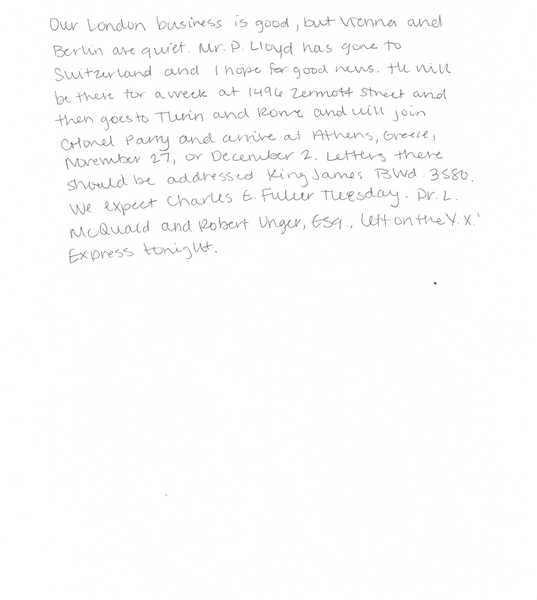 Our London business is good, but Vienna and
Berlin are quiet. Mr. D. Lloyd has gone to
Switzerland and I hope for good news. He will
be there for a week at 1496 Zermott Street and
then goes to Turin and Rome and will join
Colonel Parry and arrive at Athens, Greece,
November 27, or December 2. Letters there
should be addressed King James Blvd. 3580.
We expect Charles E. Fuller Tuesday. Dr. L.
McQuaid and Robert Unger, Esq., left on the Y.X.
Express tonight.